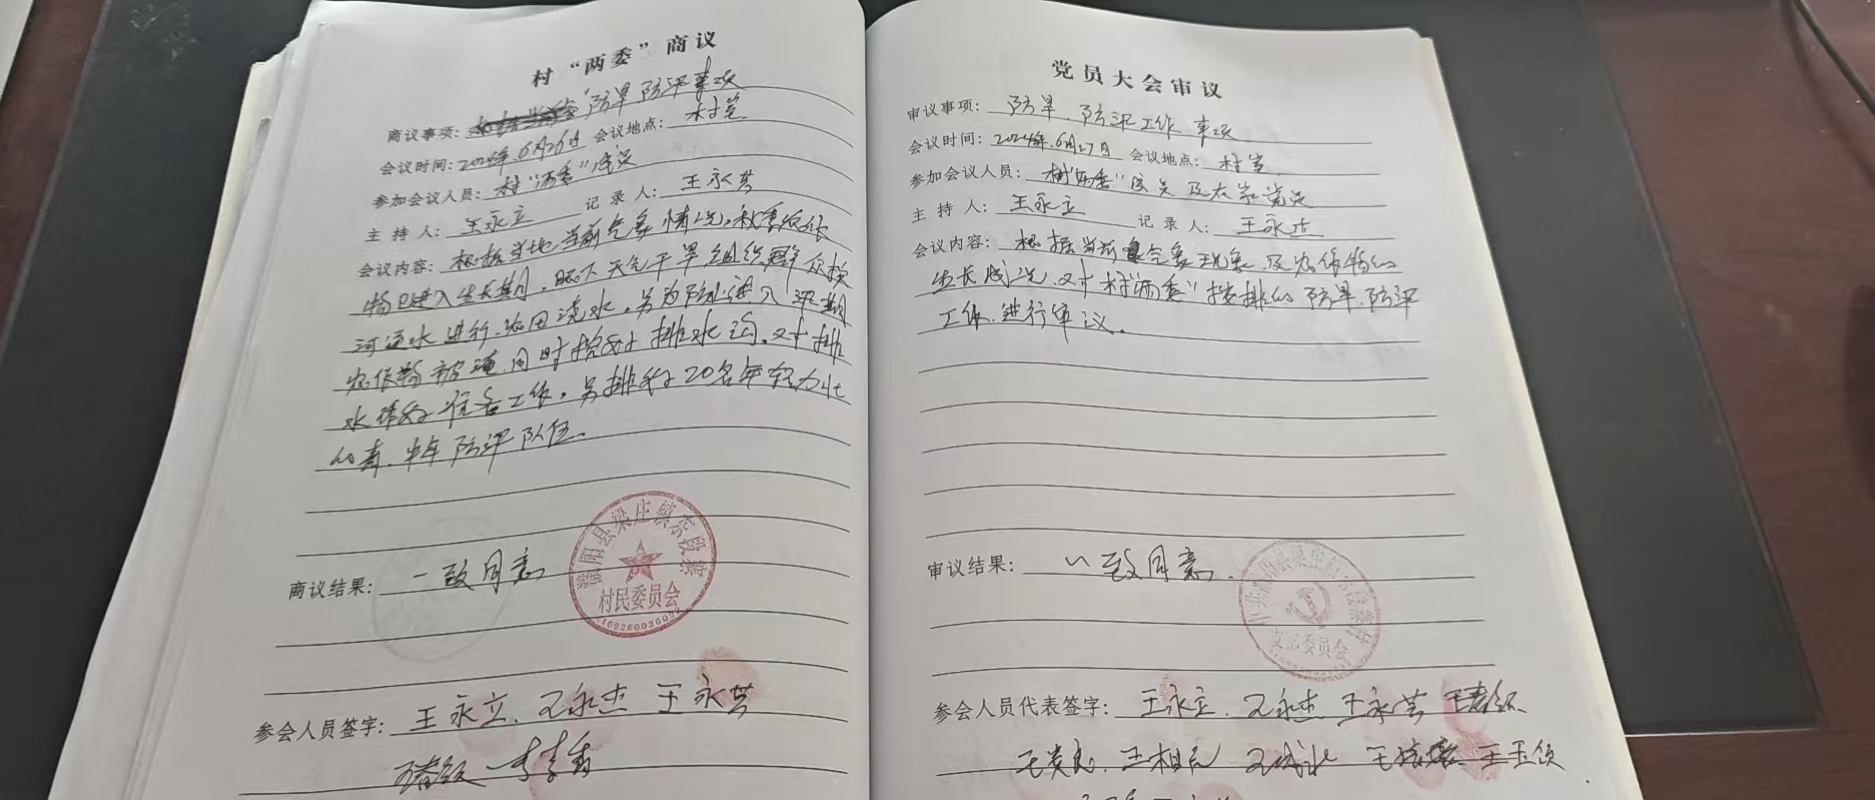 村“两委”商议
商议事项：防旱防汛事项
会议时间：2024年.6月26日 会议地点：村室
参加会议人员：村“两委”成员
主持人：王永立 记录人：王永芸
会议内容：根据当地当前气象情况，秋季农作
物已进入生长期，眼下天气干旱组织群众按
河道水进行农田浇水，另为防止进入汛期
农作物被淹，同时挖好排水沟，对排
水等好准备工作，另排好20名年轻力壮
的青、中年防汛队伍。
商议结果：一致同意
濮阳县梁庄镇东段寨
村民委员会
参会人员签字：王永立、王永杰 王永芸
党员大会审议
审议事项：防旱、防汛工作事项
会议时间：2024年.6月27日 会议地点：村室
参加会议人员：村“两委”成员及在家党员
主持人：王永立 记录人：王永杰
会议内容：根据当前气象现象及农作物的
生长情况，对村“两委”安排的防旱、防汛
工作进行审议。
审议结果：一致同意。
支部委员会
参会人员代表签字：王永立、王永杰 王永芸
王相民